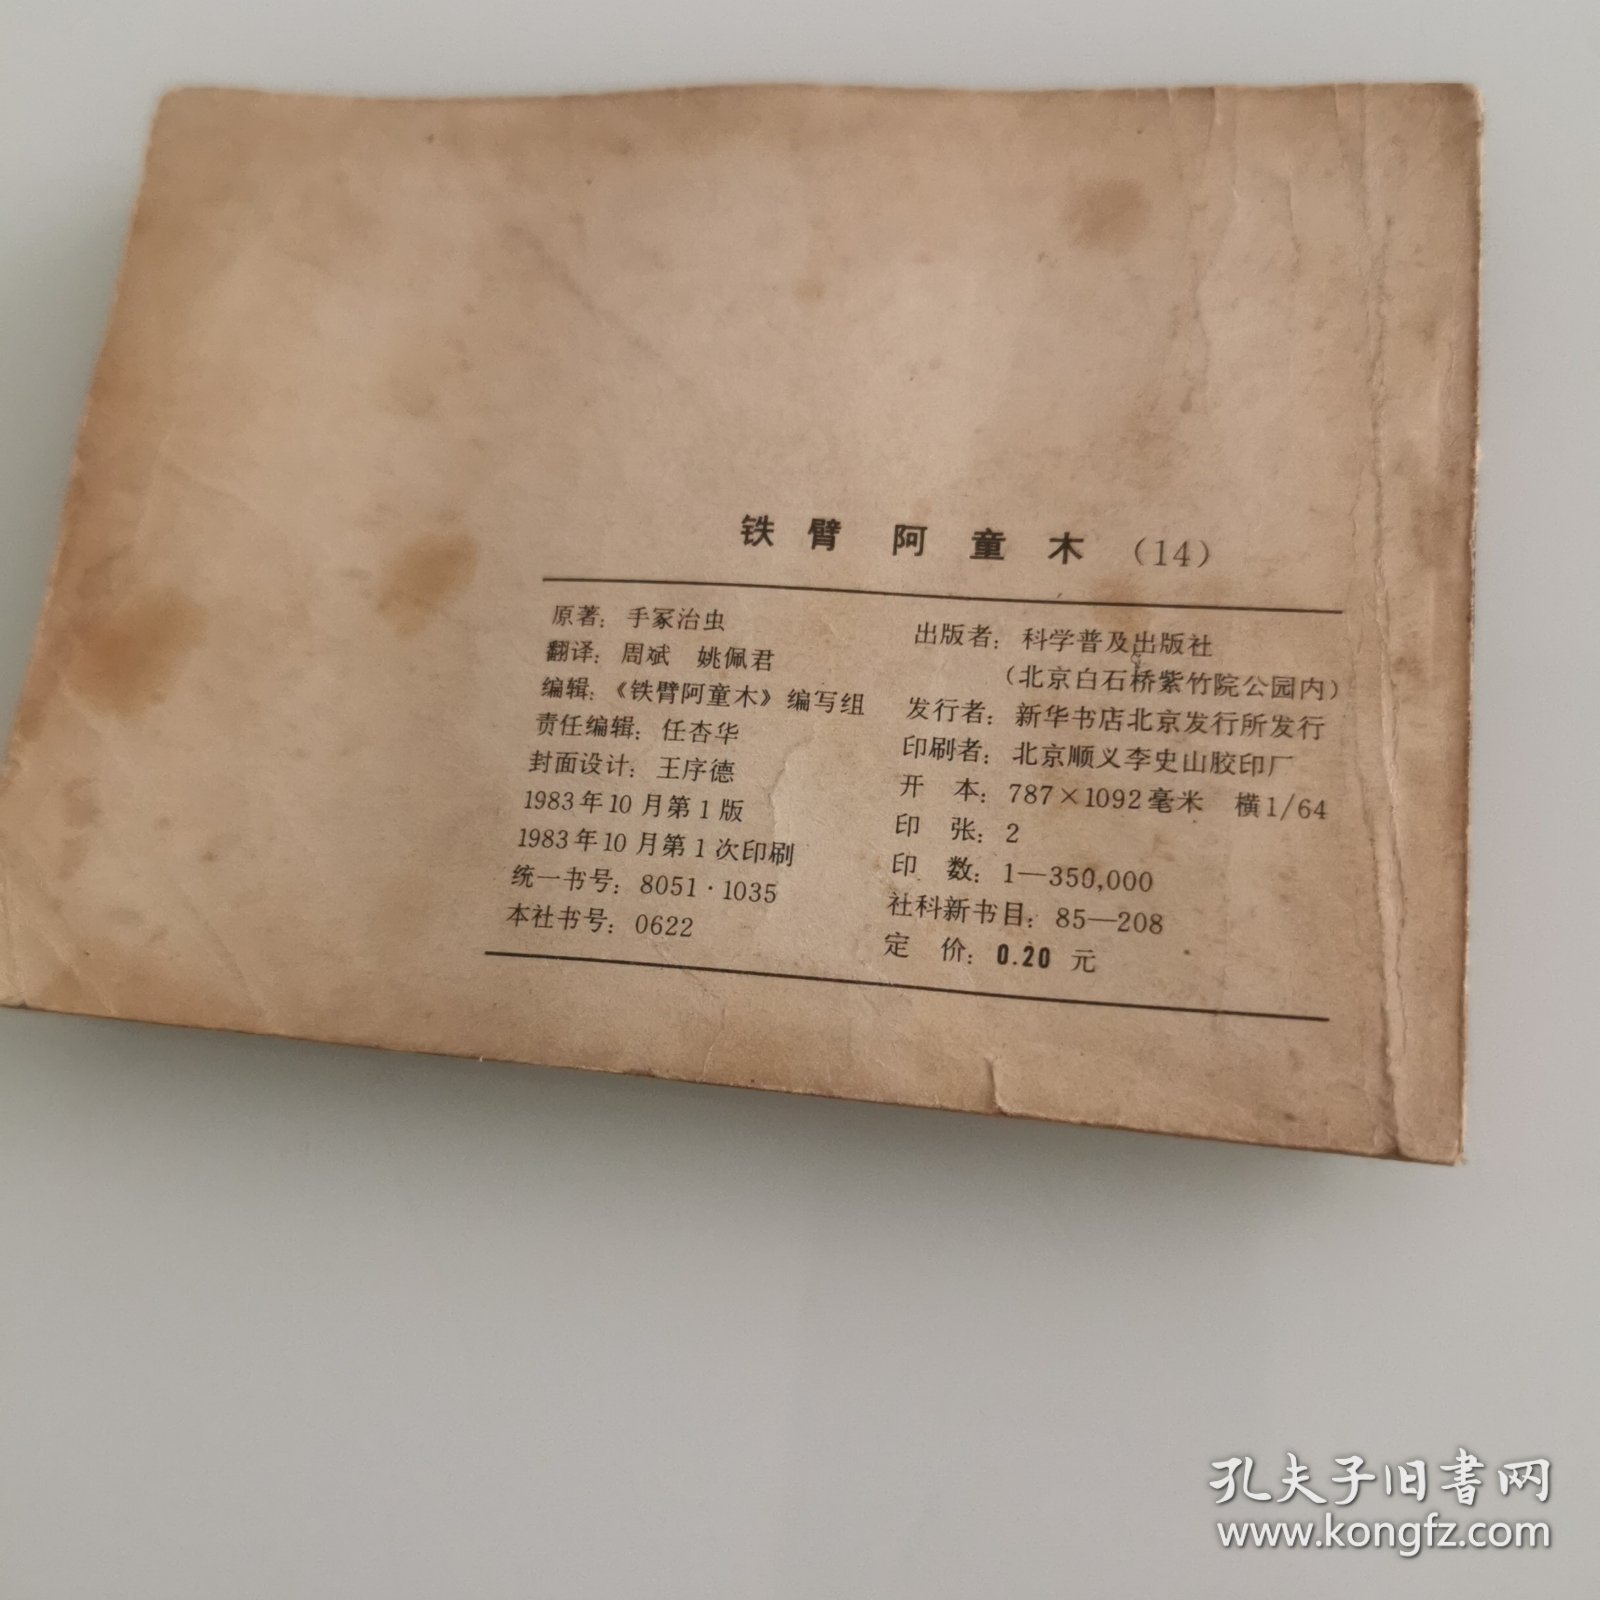 铁臂阿童木（14）
原著：手冢治虫
翻译：周斌　姚佩君
编辑：《铁臂阿童木》编写组
责任编辑：任杏华
封面设计：王序德
1983年10月第1版
1983年10月第1次印刷
统一书号：8051·1035
本社书号：0622
出版者：科学普及出版社
（北京白石桥紫竹院公园内）
发行者：新华书店北京发行所发行
印刷者：北京顺义李史山胶印厂
开　本：787×1092毫米　横1/64
印　张：2
印　数：1—350,000
社科新书目：85—208
定　价：0.20 元
孔夫子旧书网
www.kongfz.com